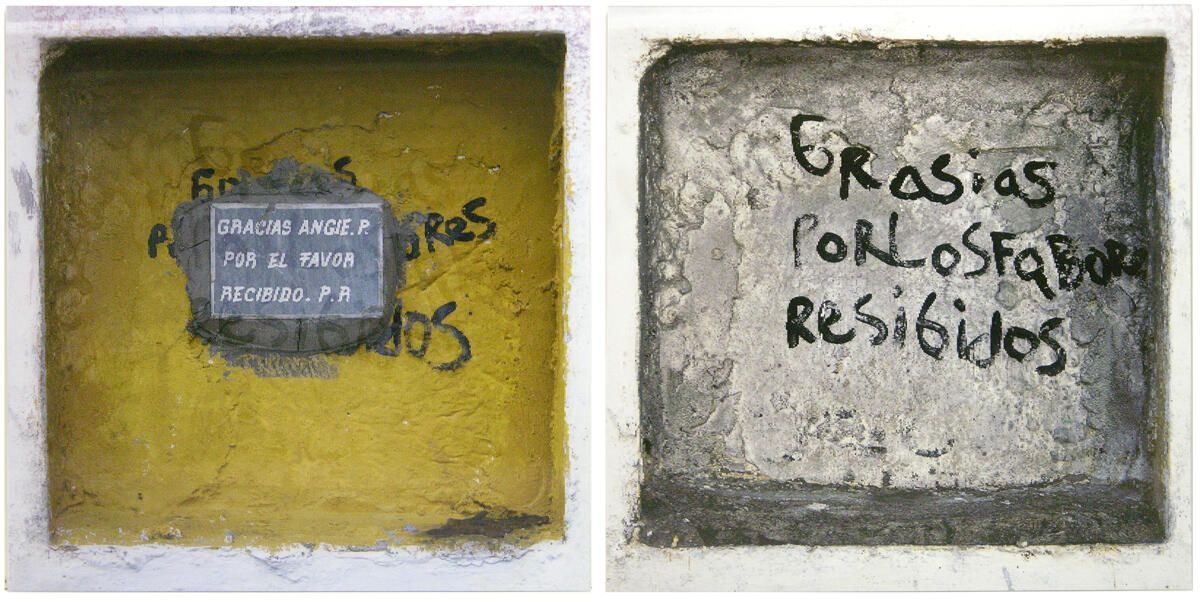 GRACIAS ANGIE. P.
POR EL FAVOR
RECIBIDO. P.R
GRasias
PORLOSFaBORe
Resibidos